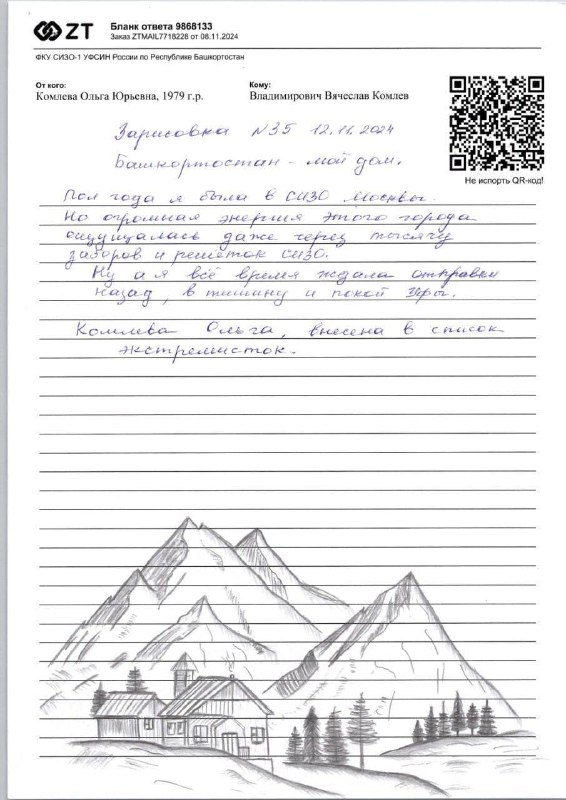 ZT
Бланк ответа 9868133
Заказ ZTMAIL7718228 от 08.11.2024
ФКУ СИЗО-1 УФСИН России по Республике Башкортостан
От кого:
Комлева Ольга Юрьевна, 1979 г.р.
Кому:
Владимирович Вячеслав Комлев
Не испорть QR-код!
Зарисовка №35 12.11.2024
Башкортостан - мой дом.
Пол года я была в СИЗО Москвы.
Но огромная энергия этого города
ощущалась даже через тысячу
заборов и решёток СИЗО.
Ну а я всё время ждала отправки
назад, в тишину и покой Уфы.
Комлева Ольга, внесена в список
экстремисток.